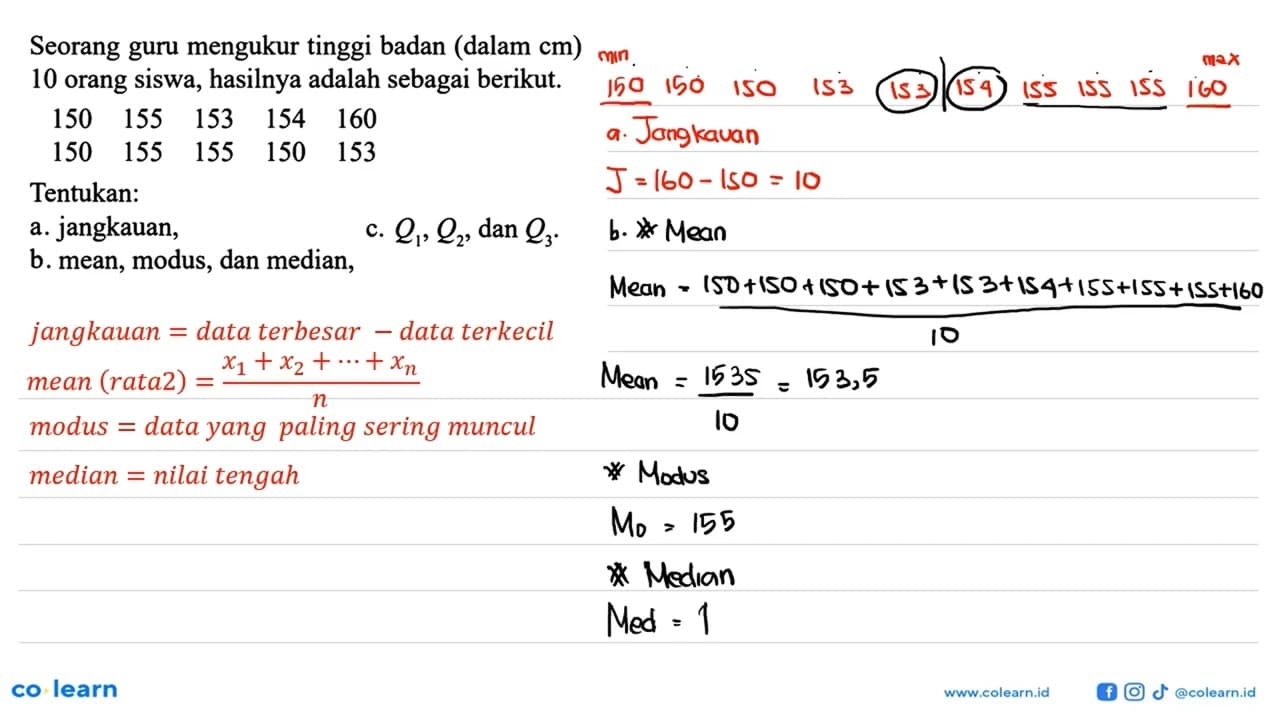 Seorang guru mengukur tinggi badan (dalam cm)
10 orang siswa, hasilnya adalah sebagai berikut.
150 155 153 154 160
150 155 155 150 153
Tentukan:
a. jangkauan,
c. Q₁, Q₂, dan Q₃.
b. mean, modus, dan median,
jangkauan = data terbesar − data terkecil
mean (rata2) = (x₁ + x₂ + ⋯ + xₙ)/n
modus = data yang paling sering muncul
median = nilai tengah
min max
150 150 150 153 153 | 154 155 155 155 160
a. Jangkauan
J = 160 - 150 = 10
b. * Mean
Mean = 150+150+150+153+153+154+155+155+155+160
10
Mean = 1535 = 153,5
10
* Modus
Mo = 155
* Median
Med = 1
co learn
www.colearn.id
@colearn.id